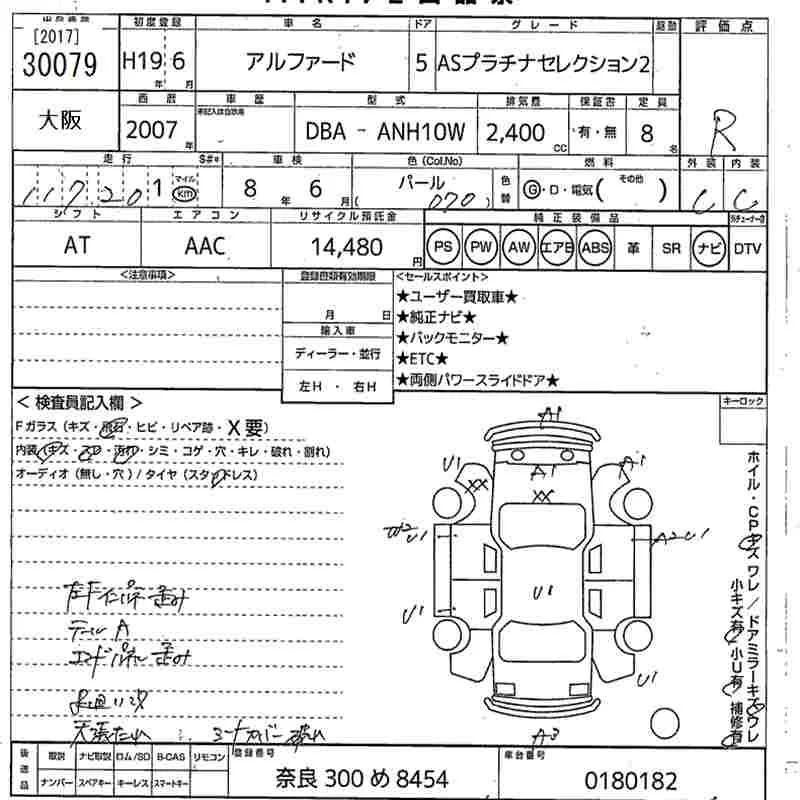 [2017]
30079
大阪
初度登録
H19 6
年 月
車名
アルファード
ドア
5
グレード
ASプラチナセレクション2
駆動
評価点
R
西暦
2007
年
車歴
型式
DBA - ANH10W
排気量
2,400
CC
保証書
有・無
定員
8
名
走行
117,201
マイル
km
車検
8 年 6 月
色(Col.No)
パール
( 070 )
色替
燃料
G・D・電気( その他 )
外装
C
内装
C
シフト
AT
エアコン
AAC
リサイクル預託金
14,480
円
純正装備品
PS PW AW エアB ABS 革 SR ナビ DTV
<注意事項>
登録書類有効期限
月 日
輸入車
ディーラー・並行
左H・右H
<セールスポイント>
★ユーザー買取車★
★純正ナビ★
★バックモニター★
★ETC★
★両側パワースライドドア★
キーロック
<検査員記入欄>
Fガラス(キズ・飛石・ヒビ・リペア跡・X要)
内装(キズ・スレ・汚れ・シミ・コゲ・穴・キレ・破れ・割れ)
オーディオ(無し・穴)/タイヤ(スタッドレス)
A1
U1
A1
XX
XX
W2
U1
A2 U1
U1
U1
U1
A3
ホイル・CPキズ ワレ/ドアミラーキズワレ
小キズ有 小U有 補修有
テール A
天張たれ シートカバー破れ
後送品
取説 ナビ取説 ロム/SD B-CAS リモコン
ナンバー スペアキー キーレス スマートキー
登録番号
奈良 300 め 8454
車台番号
0180182